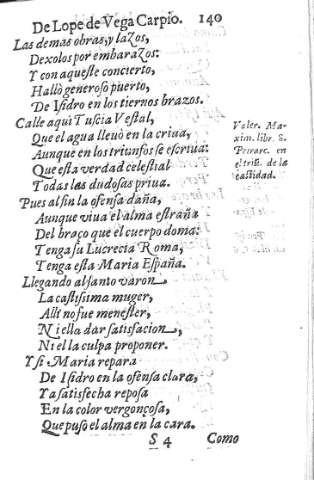 De Lope de Vega Carpio. 140
Las demas obras, y lazos,
Dexolos por embarazos:
Y con aqueste concierto,
Hallò generoso puerto,
De Isidro en los tiernos brazos.
Calle aqui Tuscia Vestal,
Que el agua lleuò en la criua,
Aunque en los triunfos se escriua:
Que esta verdad celestial
Todas las dudosas priua.
Pues al fin la ofensa daña,
Aunque viua el alma estraña
Del braço que el cuerpo doma:
Tenga su Lucrecia Roma,
Tenga esta Maria España.
Llegando al santo varon
La castissima muger,
Alli no fue menester,
Ni ella dar satisfacion,
Ni el la culpa proponer.
Y si Maria repara
De Isidro en la ofensa clara,
Ya satisfecha reposa
En la color vergonçosa,
Que puso el alma en la cara.
S 4 Como
Valer. Ma-
xim. libr. 8.
Petrarc. en
el triũ. de la
castidad.